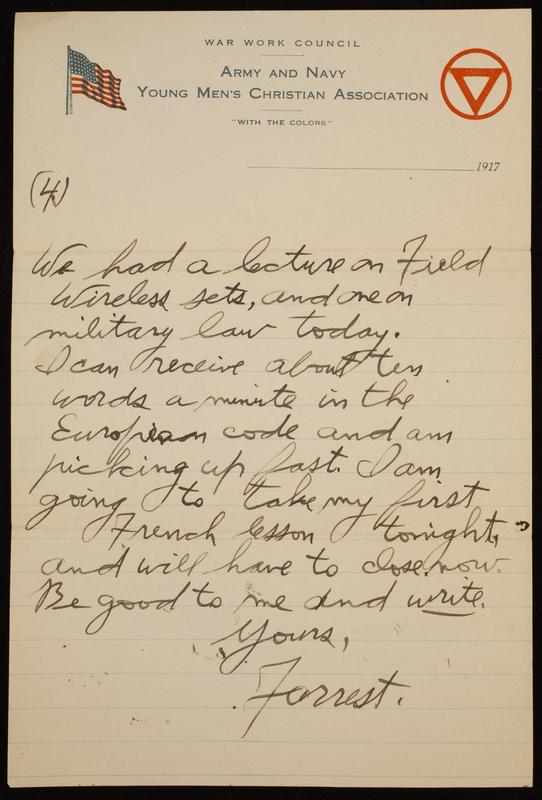 WAR WORK COUNCIL
ARMY AND NAVY
YOUNG MEN'S CHRISTIAN ASSOCIATION
"WITH THE COLORS"
1917
(4)
We had a lecture on Field
Wireless sets, and one on
military law today.
I can receive about ten
words a minute in the
European code and am
picking up fast. I am
going to take my first
French lesson tonight,
and will have to close now.
Be good to me and write.
Yours,
Forrest.